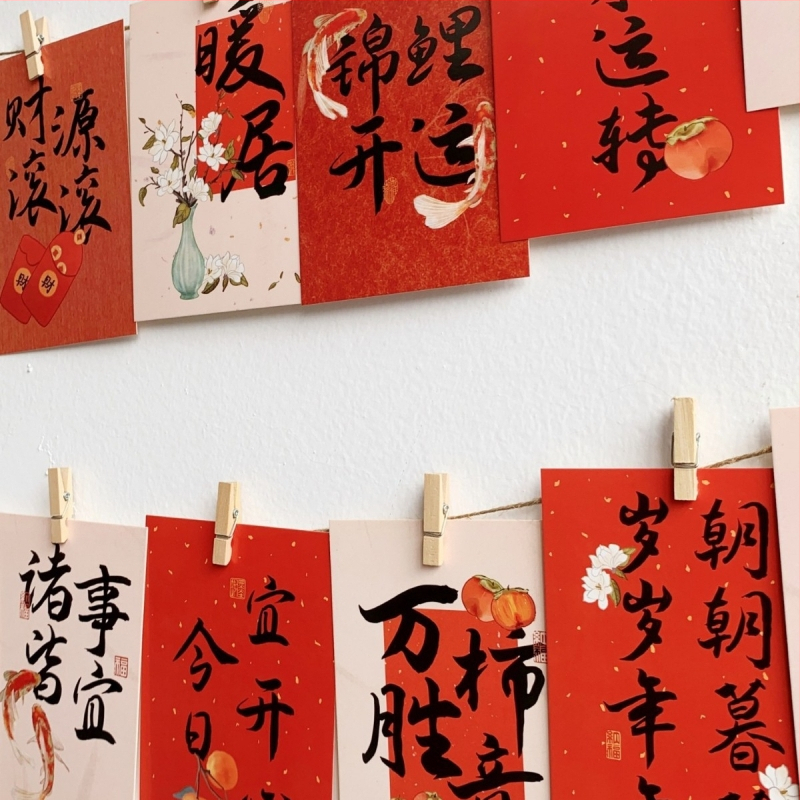 财源
滚滚
暖居
锦鲤
开运
运转
诸事
皆宜
今日
宜开
万柿
胜
朝朝暮
岁岁年